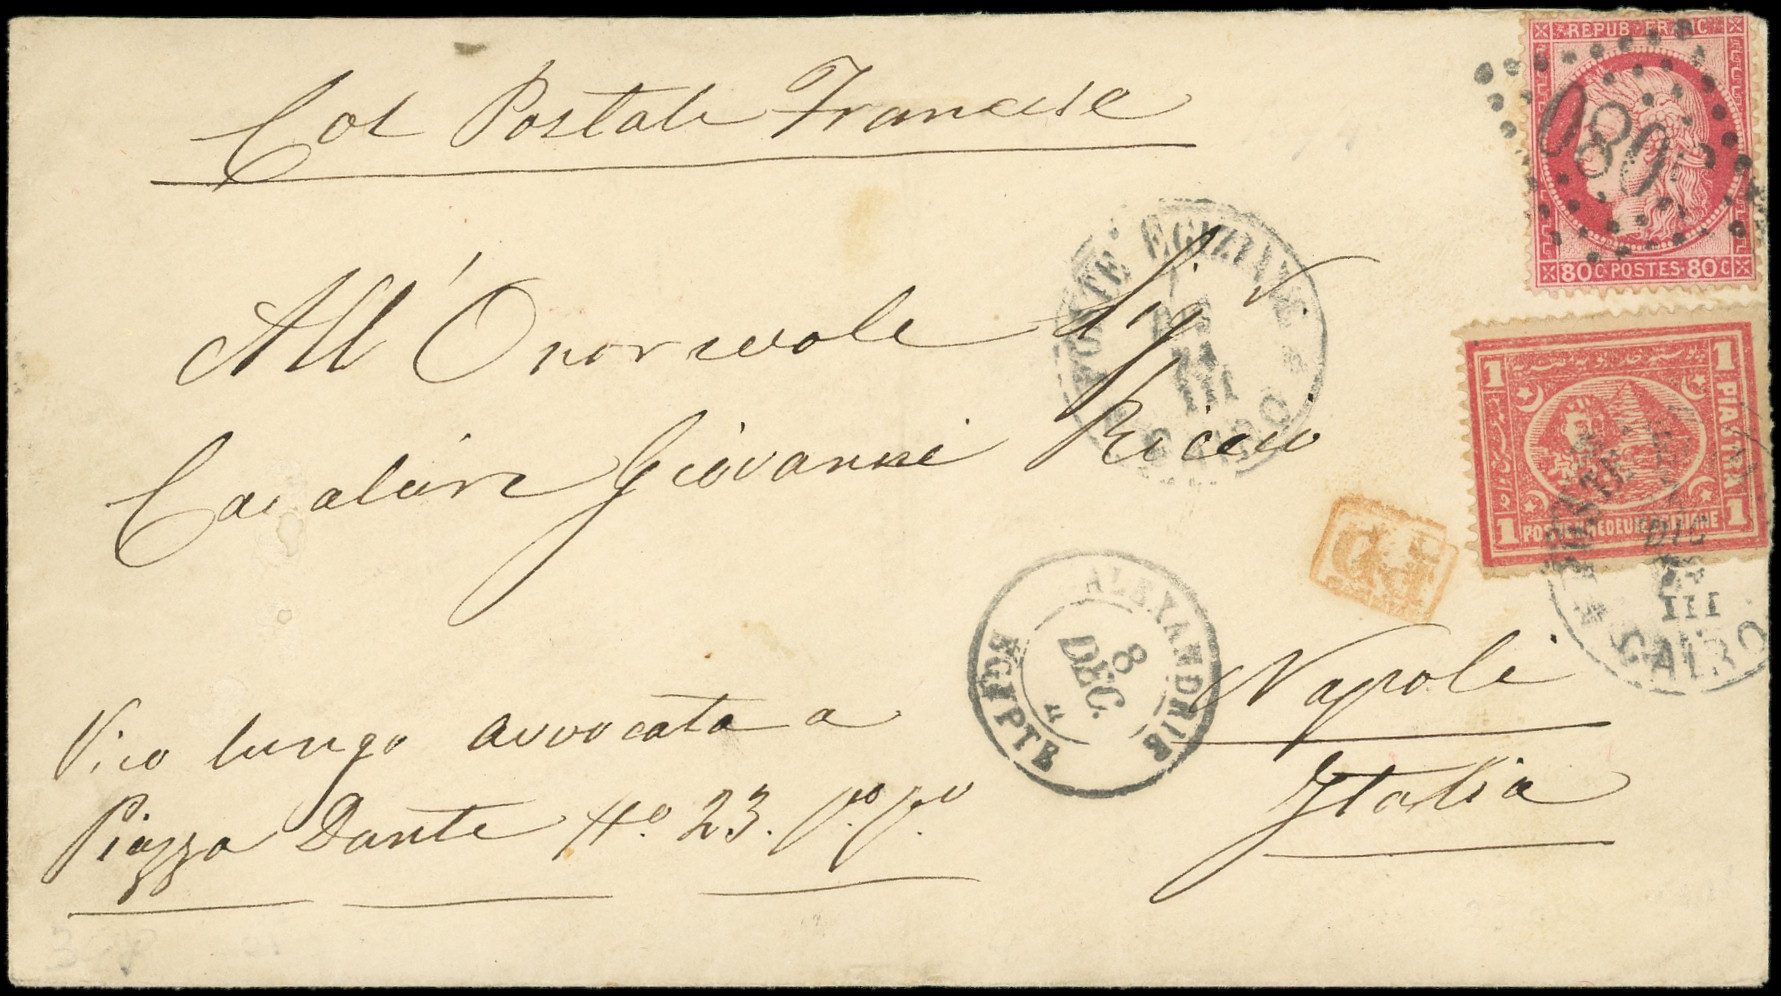 Col Postale Francese
REPUB·FRANC·
5080
80C·POSTES·80C
All' Onorevole Sigr
Cavaliere Giovanni Ricciu
POSTE EGIZIANE
DIC
III
CAIRO
1 1
PIASTRA
1 1
POSTE KHEDEUIE EGIZIANE
POSTE
DIC
III
CAIRO
PD
ALEXANDRIE
8
DEC.
EGYPTE
Napoli
Italia
Vico lungo avvocata a
Piazza Dante No 23. po po